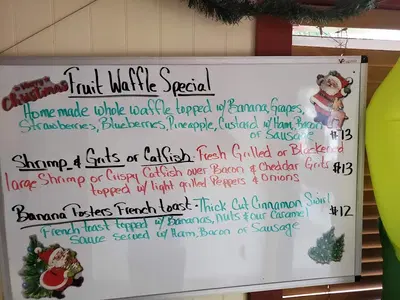 Merry
Christmas
Fruit Waffle Special
Homemade whole waffle topped w/ Banana, Grapes,
Strawberries, Blueberries, Pineapple, Custard w/ Ham, Bacon
or Sausage
$13
Shrimp & Grits or Catfish - Fresh Grilled or Blackened
large Shrimp or Crispy Catfish over Bacon & Cheddar Grits
$13
topped w/ light grilled Peppers & Onions
Banana Fosters French toast - Thick Cut Cinnamon Swirl
$12
French toast topped w/ Bananas, Nuts & our Caramel
Sauce served w/ Ham, Bacon or Sausage